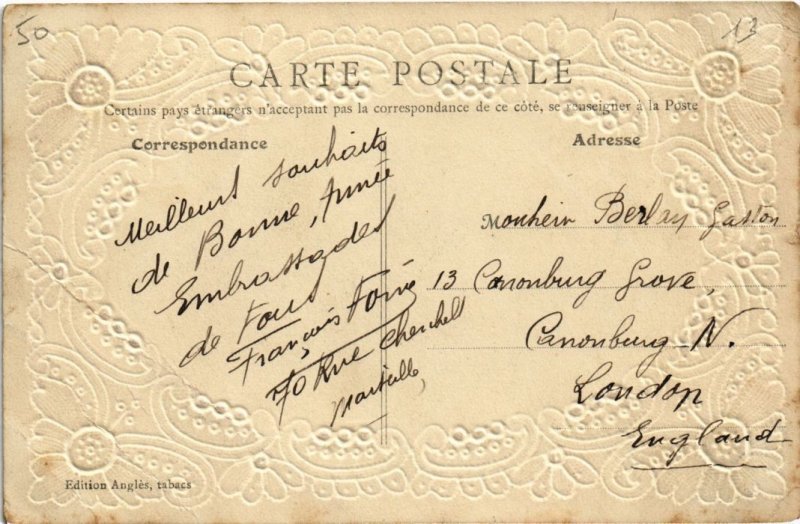 50
13
CARTE POSTALE
Certains pays étrangers n'acceptent pas la correspondance de ce côté, se renseigner à la Poste
Correspondance
Adresse
Meilleurs souhaits
de Bonne Année
Embrassades
de Tous
François
70 Rue Cherchell
Marseille
Monsieur Berlay Gaston
13 Canonburg Grove,
Canonburg N.
London
England
Edition Anglès, tabacs